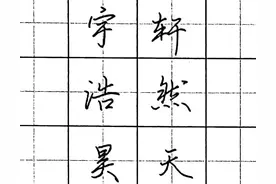 宇轩
浩然
昊天